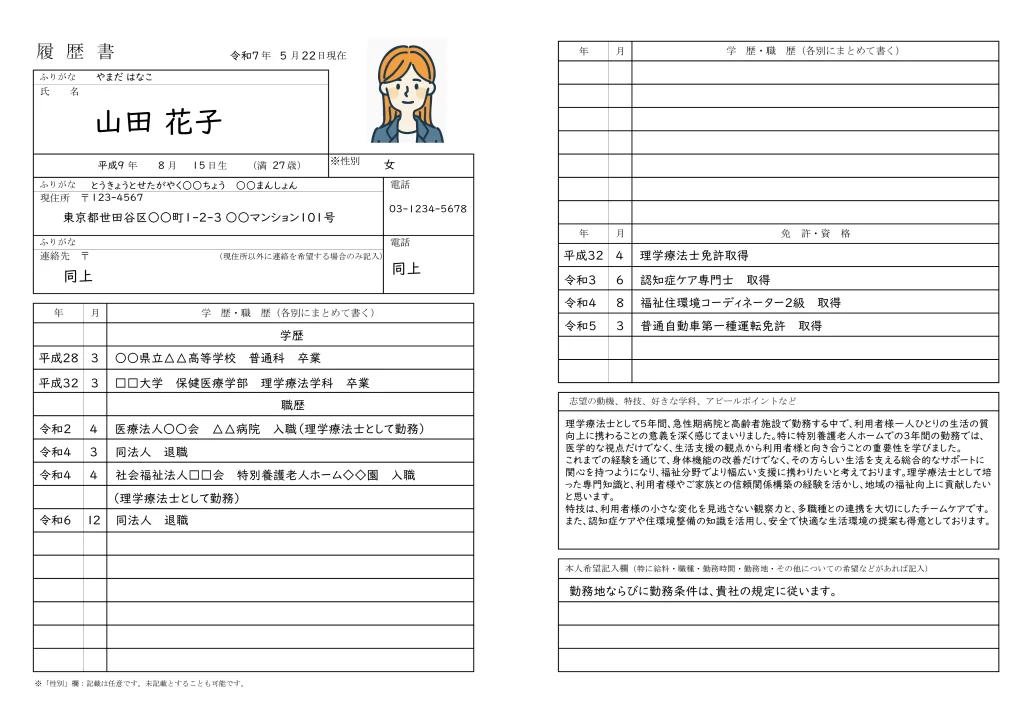 履歴書
令和7年 5月22日現在
ふりがな やまだ はなこ
氏 名
山田 花子
平成9年 8月 15日生 (満 27歳)
※性別 女
ふりがな とうきょうとせたがやく〇〇ちょう 〇〇まんしょん
現住所 〒123-4567
東京都世田谷区〇〇町1-2-3 〇〇マンション101号
電話
03-1234-5678
ふりがな
連絡先 〒 (現住所以外に連絡を希望する場合のみ記入)
同上
電話
同上
年 月 学 歴・職 歴(各別にまとめて書く)
学歴
平成28 3 〇〇県立△△高等学校 普通科 卒業
平成32 3 □□大学 保健医療学部 理学療法学科 卒業
職歴
令和2 4 医療法人〇〇会 △△病院 入職(理学療法士として勤務)
令和4 3 同法人 退職
令和4 4 社会福祉法人□□会 特別養護老人ホーム◇◇園 入職
(理学療法士として勤務)
令和6 12 同法人 退職
※「性別」欄:記載は任意です。未記載とすることも可能です。
年 月 学 歴・職 歴(各別にまとめて書く)
年 月 免 許・資 格
平成32 4 理学療法士免許取得
令和3 6 認知症ケア専門士 取得
令和4 8 福祉住環境コーディネーター2級 取得
令和5 3 普通自動車第一種運転免許 取得
志望の動機、特技、好きな学科、アピールポイントなど
理学療法士として5年間、急性期病院と高齢者施設で勤務する中で、利用者様一人ひとりの生活の質
向上に携わることの意義を深く感じてまいりました。特に特別養護老人ホームでの3年間の勤務では、
医学的な視点だけでなく、生活支援の観点から利用者様と向き合うことの重要性を学びました。
これまでの経験を通じて、身体機能の改善だけでなく、その方らしい生活を支える総合的なサポートに
関心を持つようになり、福祉分野でより幅広い支援に携わりたいと考えております。理学療法士として培
った専門知識と、利用者様やご家族との信頼関係構築の経験を活かし、地域の福祉向上に貢献したい
と思います。
特技は、利用者様の小さな変化を見逃さない観察力と、多職種との連携を大切にしたチームケアです。
また、認知症ケアや住環境整備の知識を活用し、安全で快適な生活環境の提案も得意としております。
本人希望記入欄(特に給料・職種・勤務時間・勤務地・その他についての希望などがあれば記入)
勤務地ならびに勤務条件は、貴社の規定に従います。